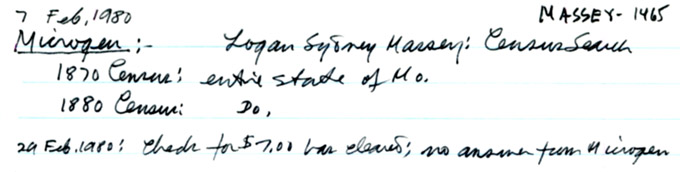 7 Feb, 1980 MASSEY-1465
Microgen:- Logan Sydney Massey: Census Search
1870 Census: entire state of Mo.
1880 Census: Do.
29 Feb. 1980: Check for $7.00 has cleared; no answer from Microgen